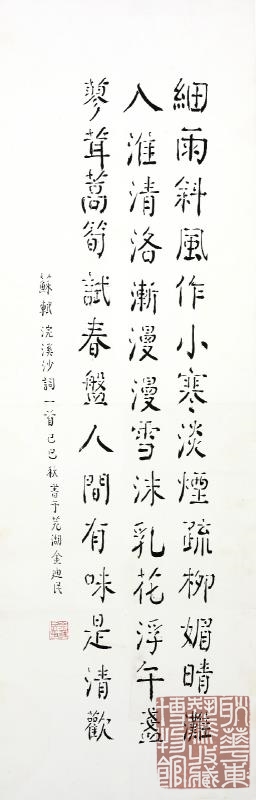 細雨斜風作小寒淡煙疏柳媚晴灘
入淮清洛漸漫漫雪沫乳花浮午盞
蓼茸蒿筍試春盤人間有味是清歡
蘇軾浣溪沙詞一首己巳秋書于蕪湖金迺民